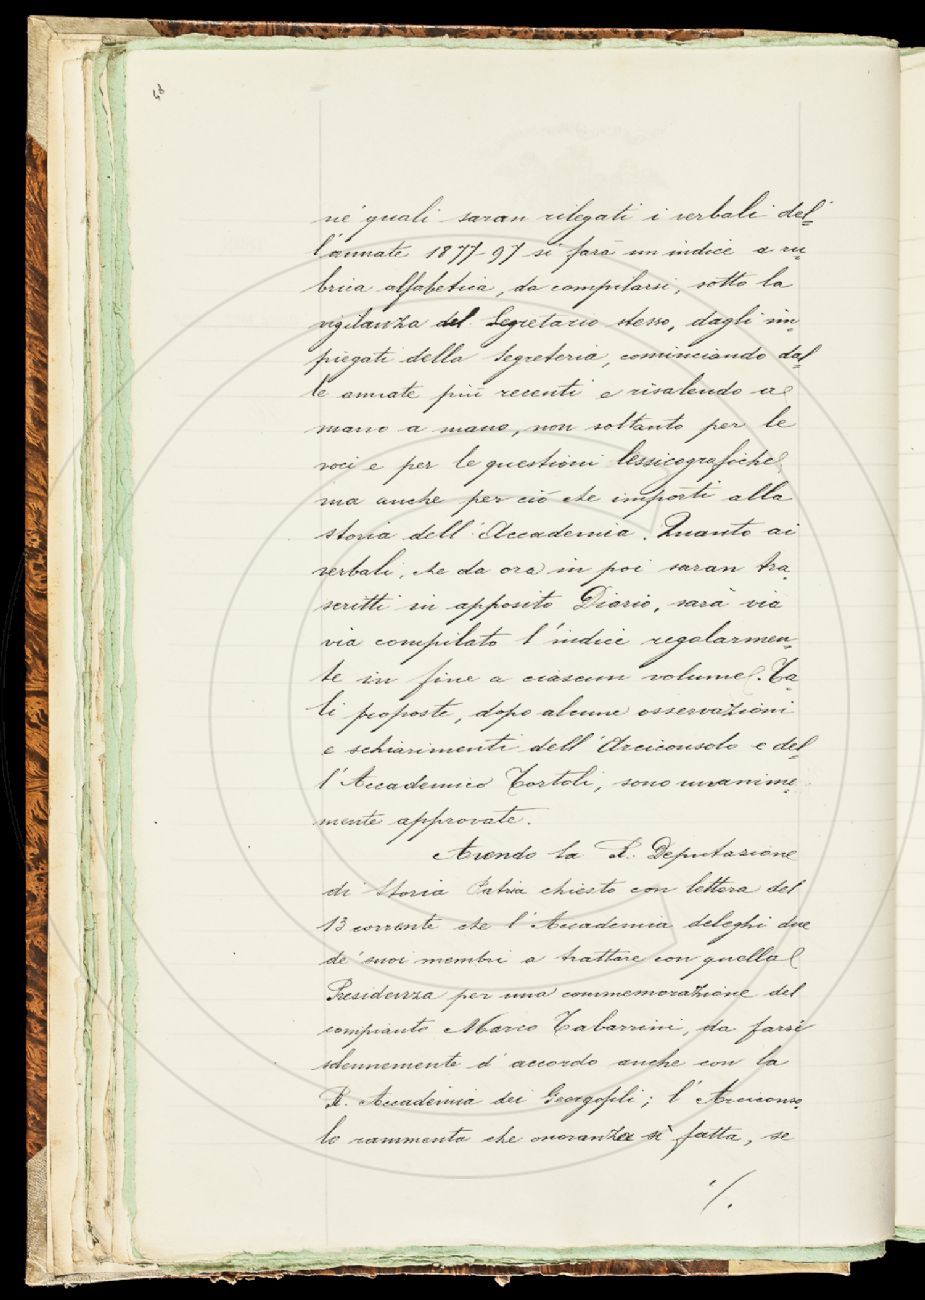 48
ne' quali saran rilegati i verbali del=
l'annate 1877-97 si farà un indice a ru=
brica alfabetica, da compilarsi, sotto la
vigilanza del Segretario stesso, dagli im=
piegati della Segreteria, cominciando dal=
le annate più recenti e risalendo a
mano a mano, non soltanto per le
voci e per le questioni lessicografiche
ma anche per ciò che importi alla
storia dell'Accademia. Quanto ai
verbali, che da ora in poi saran tra=
scritti in apposito Diario, sarà via
via compilato l'indice regolarmen=
te in fine a ciascun volume. Ta=
li proposte, dopo alcune osservazioni
e schiarimenti dell'Arciconsolo e del=
l'Accademico Tortoli, sono unanime=
mente approvate.
Avendo la R. Deputazione
di Storia Patria chiesto con lettera del
13 corrente che l'Accademia deleghi due
de' suoi membri a trattare con quella
Presidenza per una commemorazione del
compianto Marco Tabarrini, da farsi
solennemente d'accordo anche con la
R. Accademia dei Georgofili; l'Arciconso=
lo rammenta che onoranza sì fatta, se
./.